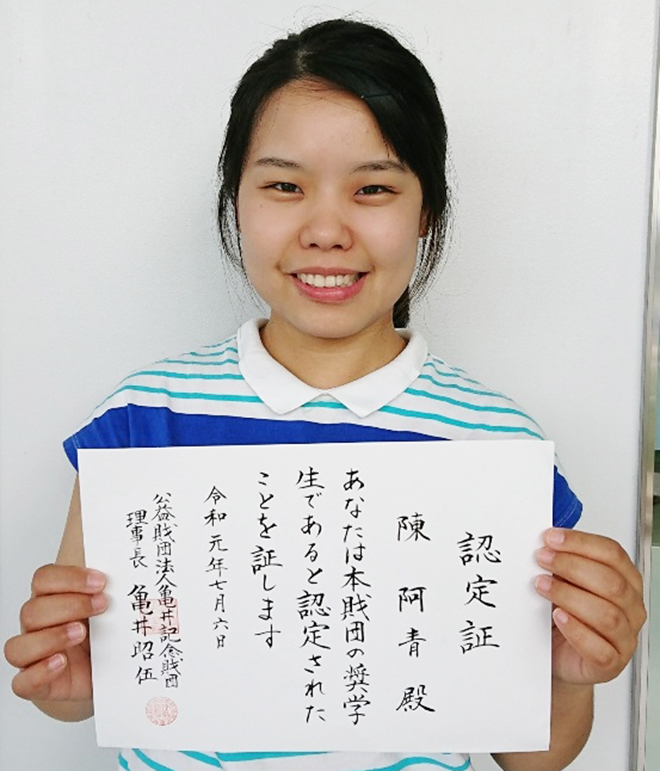 認定証
陳 阿青 殿
あなたは本財団の奨学
生であると認定された
ことを証します
令和元年七月六日
公益財団法人亀井記念財団
理事長 亀井昭伍